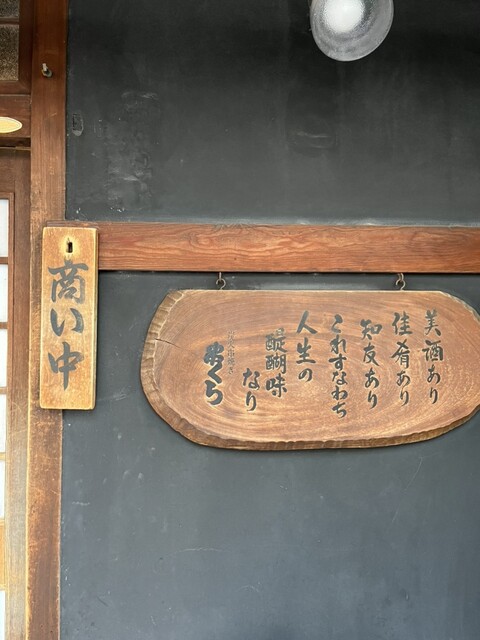 美酒あり
佳肴あり
知友あり
これすなわち
人生の
醍醐味
なり
くら
商い中